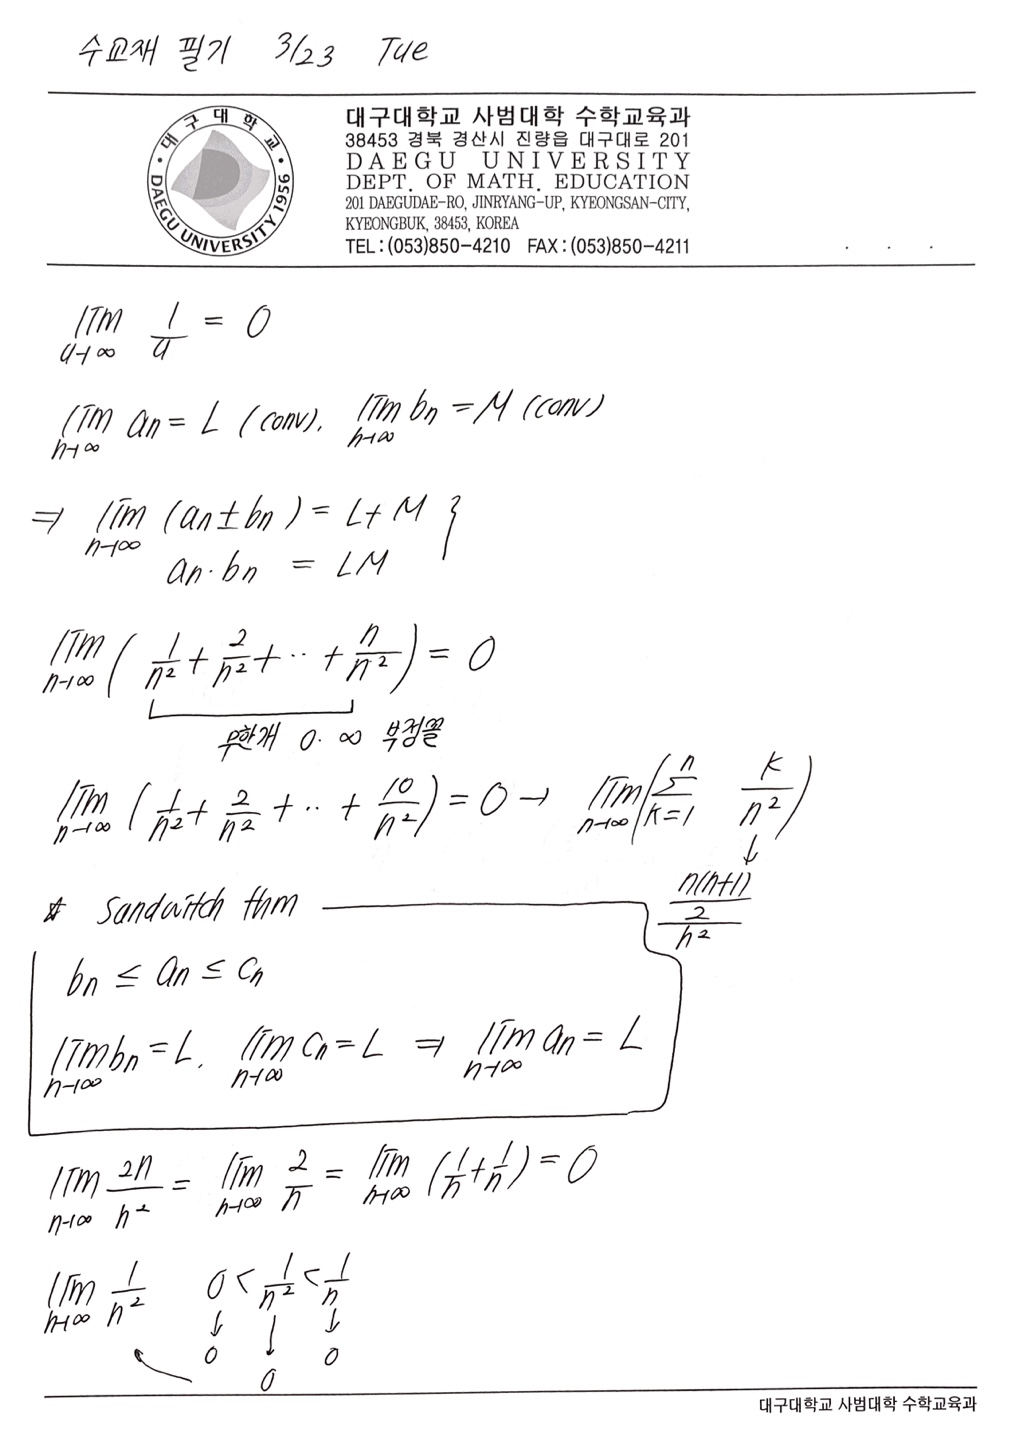 수교재 필기 3/23 Tue
대구대학교
DAEGU UNIVERSITY 1956
대구대학교 사범대학 수학교육과
38453 경북 경산시 진량읍 대구대로 201
DAEGU UNIVERSITY
DEPT. OF MATH. EDUCATION
201 DAEGUDAE-RO, JINRYANG-UP, KYEONGSAN-CITY,
KYEONGBUK, 38453, KOREA
TEL : (053)850-4210 FAX : (053)850-4211 . . .
lim_{a→∞} 1/a = 0
lim_{n→∞} an = L (conv). lim_{n→∞} bn = M (conv)
⇒ lim_{n→∞} (an ± bn) = L+M }
an · bn = LM
lim_{n→∞} ( 1/n² + 2/n² + ·· + n/n² ) = 0
무한개 0·∞ 부정꼴
lim_{n→∞} ( 1/n² + 2/n² + ·· + 10/n² ) = 0 → lim_{n→∞} ( Σ_{k=1}^{n} k/n² )
↓
(n(n+1)/2)/n²
☆ Sandwitch thm
bn ≤ an ≤ cn
lim_{n→∞} bn = L. lim_{n→∞} cn = L ⇒ lim_{n→∞} an = L
lim_{n→∞} 2n/n² = lim_{n→∞} 2/n = lim_{n→∞} (1/n + 1/n) = 0
lim_{n→∞} 1/n² 0 < 1/n² < 1/n
↓ ↓ ↓
0 0 0
대구대학교 사범대학 수학교육과